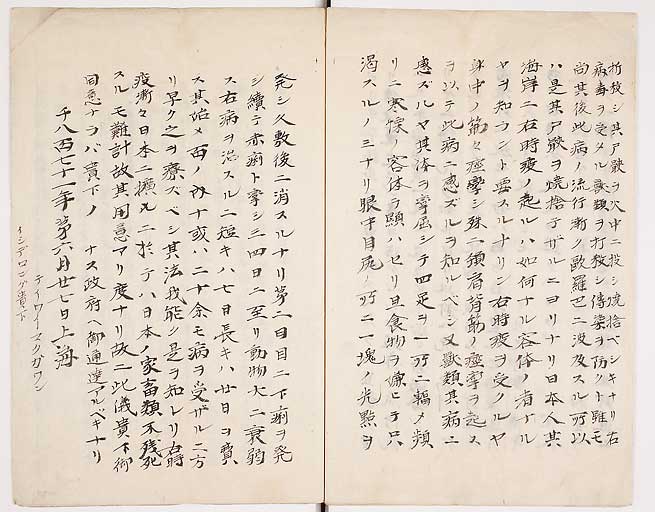 打殺シ其尸骸ヲ火中ニ投シ焼捨ベシキナリ右
病毒ヲ受タル獣類ヲ打殺シ傳染ヲ防クト雖モ
尚其後此病ノ流行漸ク歐羅巴ニ波及スル所以
ハ是其尸骸ヲ焼捨テザルニヨリナリ日本人其
海岸ニ右時疫ノ起ルハ如何ナル容体ノ者ナル
ヤヲ知ラント要スルナリン右時疫ヲ受クルヤ
身中ノ筋々痙攣シ殊ニ頭肩背筋ノ痙攣ヲ起ス
ヲ以テ此病ニ感ズルヲ知ルベシ又獣類其病ニ
感ズルヤ其体ヲ屈シテ四足ヲ一所ニ輻メ頻
リニ寒慄ノ容体ヲ顕ハセリ且食物ヲ嫌ヒテ只
渇スルノミナリ眼中目尻ノ所ニ一塊ノ光點ヲ
発シ久敷後ニ消スルナリ第二日目ニ下痢ヲ発
シ續テ赤痢ト率シ三四日ニ至リ動物大ニ衰弱
ス右病ヲ治スルニ短キハ七日長キハ廿日ヲ費
ス其始メ百ノ内十或ハ二十余モ病ヲ受ザル二方
リ早ク之ヲ療ズベシ其法我能ク是ヲ知レリ右時
疫漸々日本ニ擴ルニ於テハ日本ノ家畜類不残死
スルモ難計故其用意アリ度ナリ故ニ此儀貴下御
同意ナラバ貴下ノナス政府ヘ御通達アルベキナリ
千八百七十一年第六月廿七日上海
テイワイマクガウン
イシデロロング貴下